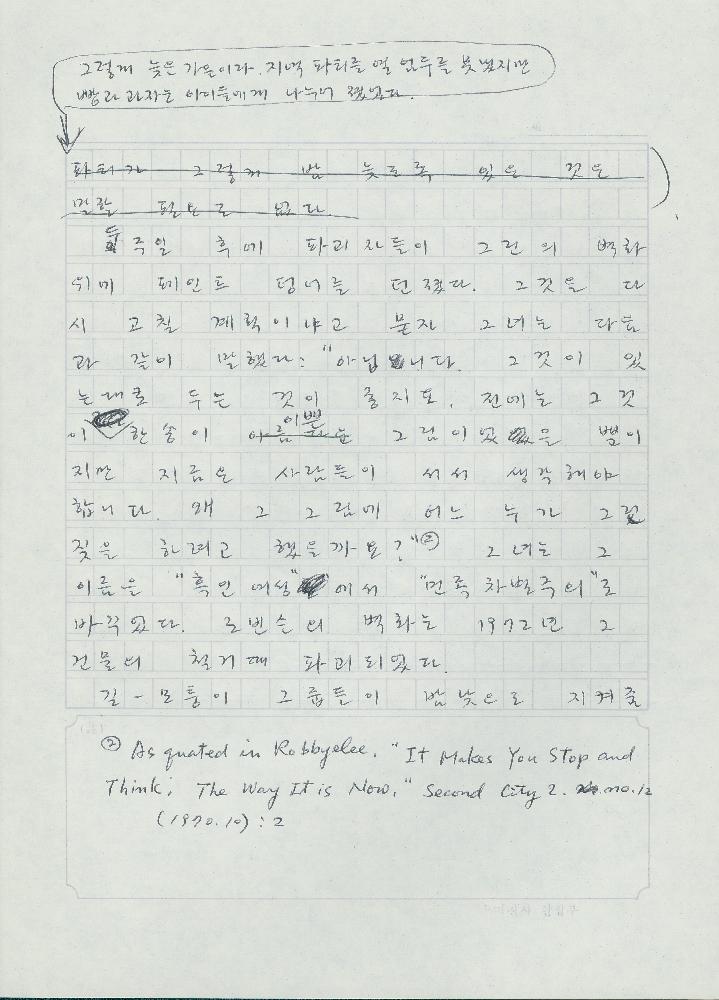 그렇게 늦은 가을이라. 지역 파티를 열 엄두를 못 냈지만
빵과 과자는 아이들에게 나누어 졌었다.
파티가 그렇게 밤 늦도록 있은 것은
말할 필요도 없다.
두주일 후에 파괴자들이 그린의 벽화
위에 페인트 덩어를 던졌다. 그것을 다
시 고칠 계획이냐고 묻자 그녀는 다음
과 같이 말했다: "아닙니다. 그것이 있
는대로 두는 것이 좋지요. 전에는 그것
이 한송이 이쁜 그림이었을 뿐이
지만 지금은 사람들이 서서 생각해야
합니다. 왜 그 그림에 어느 누가 그런
짓을 하려고 했을까요?"② 그녀는 그
이름을 "흑인 여성"에서 "민족 차별주의"로
바꾸었다. 로빈슨의 벽화는 1972년 그
건물의 철거때 파괴되었다.
길-모퉁이 그룹들이 밤낮으로 지켜줄
② As quated in Robbyelee. "It Makes You Stop and
Think; The Way It is Now," Second City 2. no.12
(1970.10) : 2